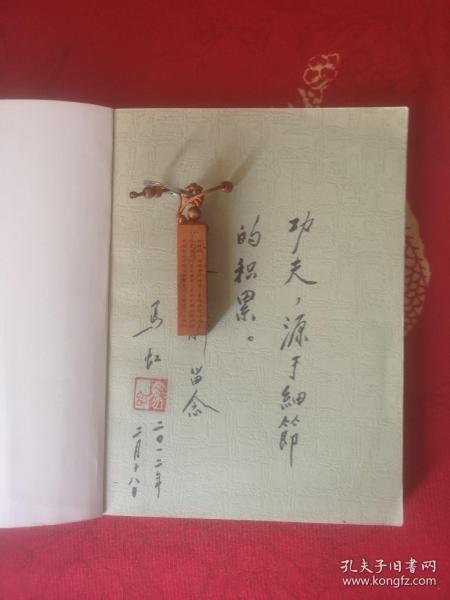 功夫，源于细节
的积累。
留念
马虹
二〇一二年
二月十八日
孔夫子旧书网
www.kongfz.com